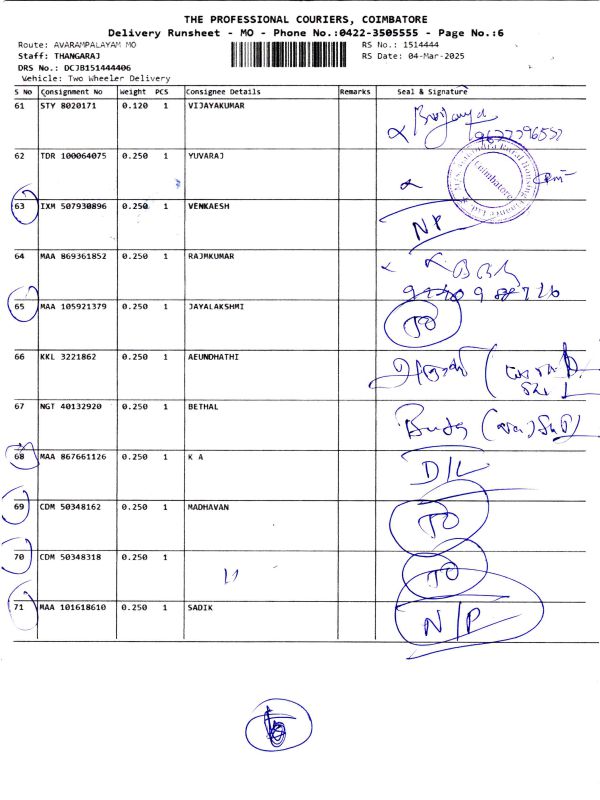 THE PROFESSIONAL COURIERS, COIMBATORE
Delivery Runsheet - MO - Phone No.:0422-3505555 - Page No.:6
Route: AVARAMPALAYAM MO
RS No.: 1514444
Staff: THANGARAJ
RS Date: 04-Mar-2025
DRS No.: DCJB151444406
Vehicle: Two Wheeler Delivery
S NO Consignment No Weight PCS Consignee Details Remarks Seal & Signature
61 STY 8020171 0.120 1 VIJAYAKUMAR
62 TDR 100064075 0.250 1 YUVARAJ
Coimbatore
63 IXM 507930896 0.250 1 VENKAESH NP
64 MAA 869361852 0.250 1 RAJMKUMAR
65 MAA 105921379 0.250 1 JAYALAKSHMI TO
66 KKL 3221862 0.250 1 AEUNDHATHI
67 NGT 40132920 0.250 1 BETHAL
68 MAA 867661126 0.250 1 K A D/L
69 CDM 50348162 0.250 1 MADHAVAN TO
70 CDM 50348318 0.250 1 TO
71 MAA 101618610 0.250 1 SADIK N/P